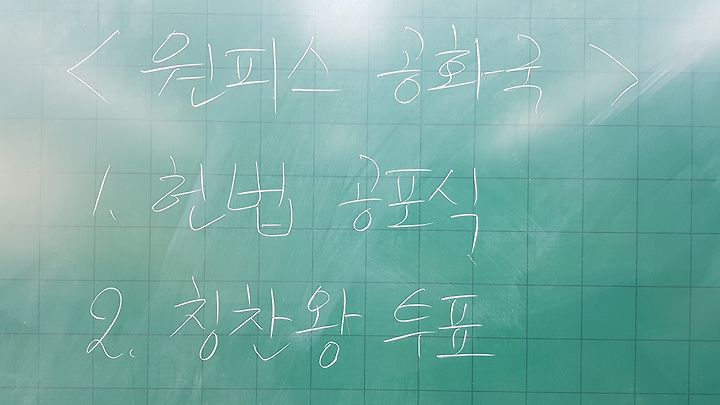 < 원피스 공화국 >
1. 헌법 공포식
2. 칭찬왕 투표